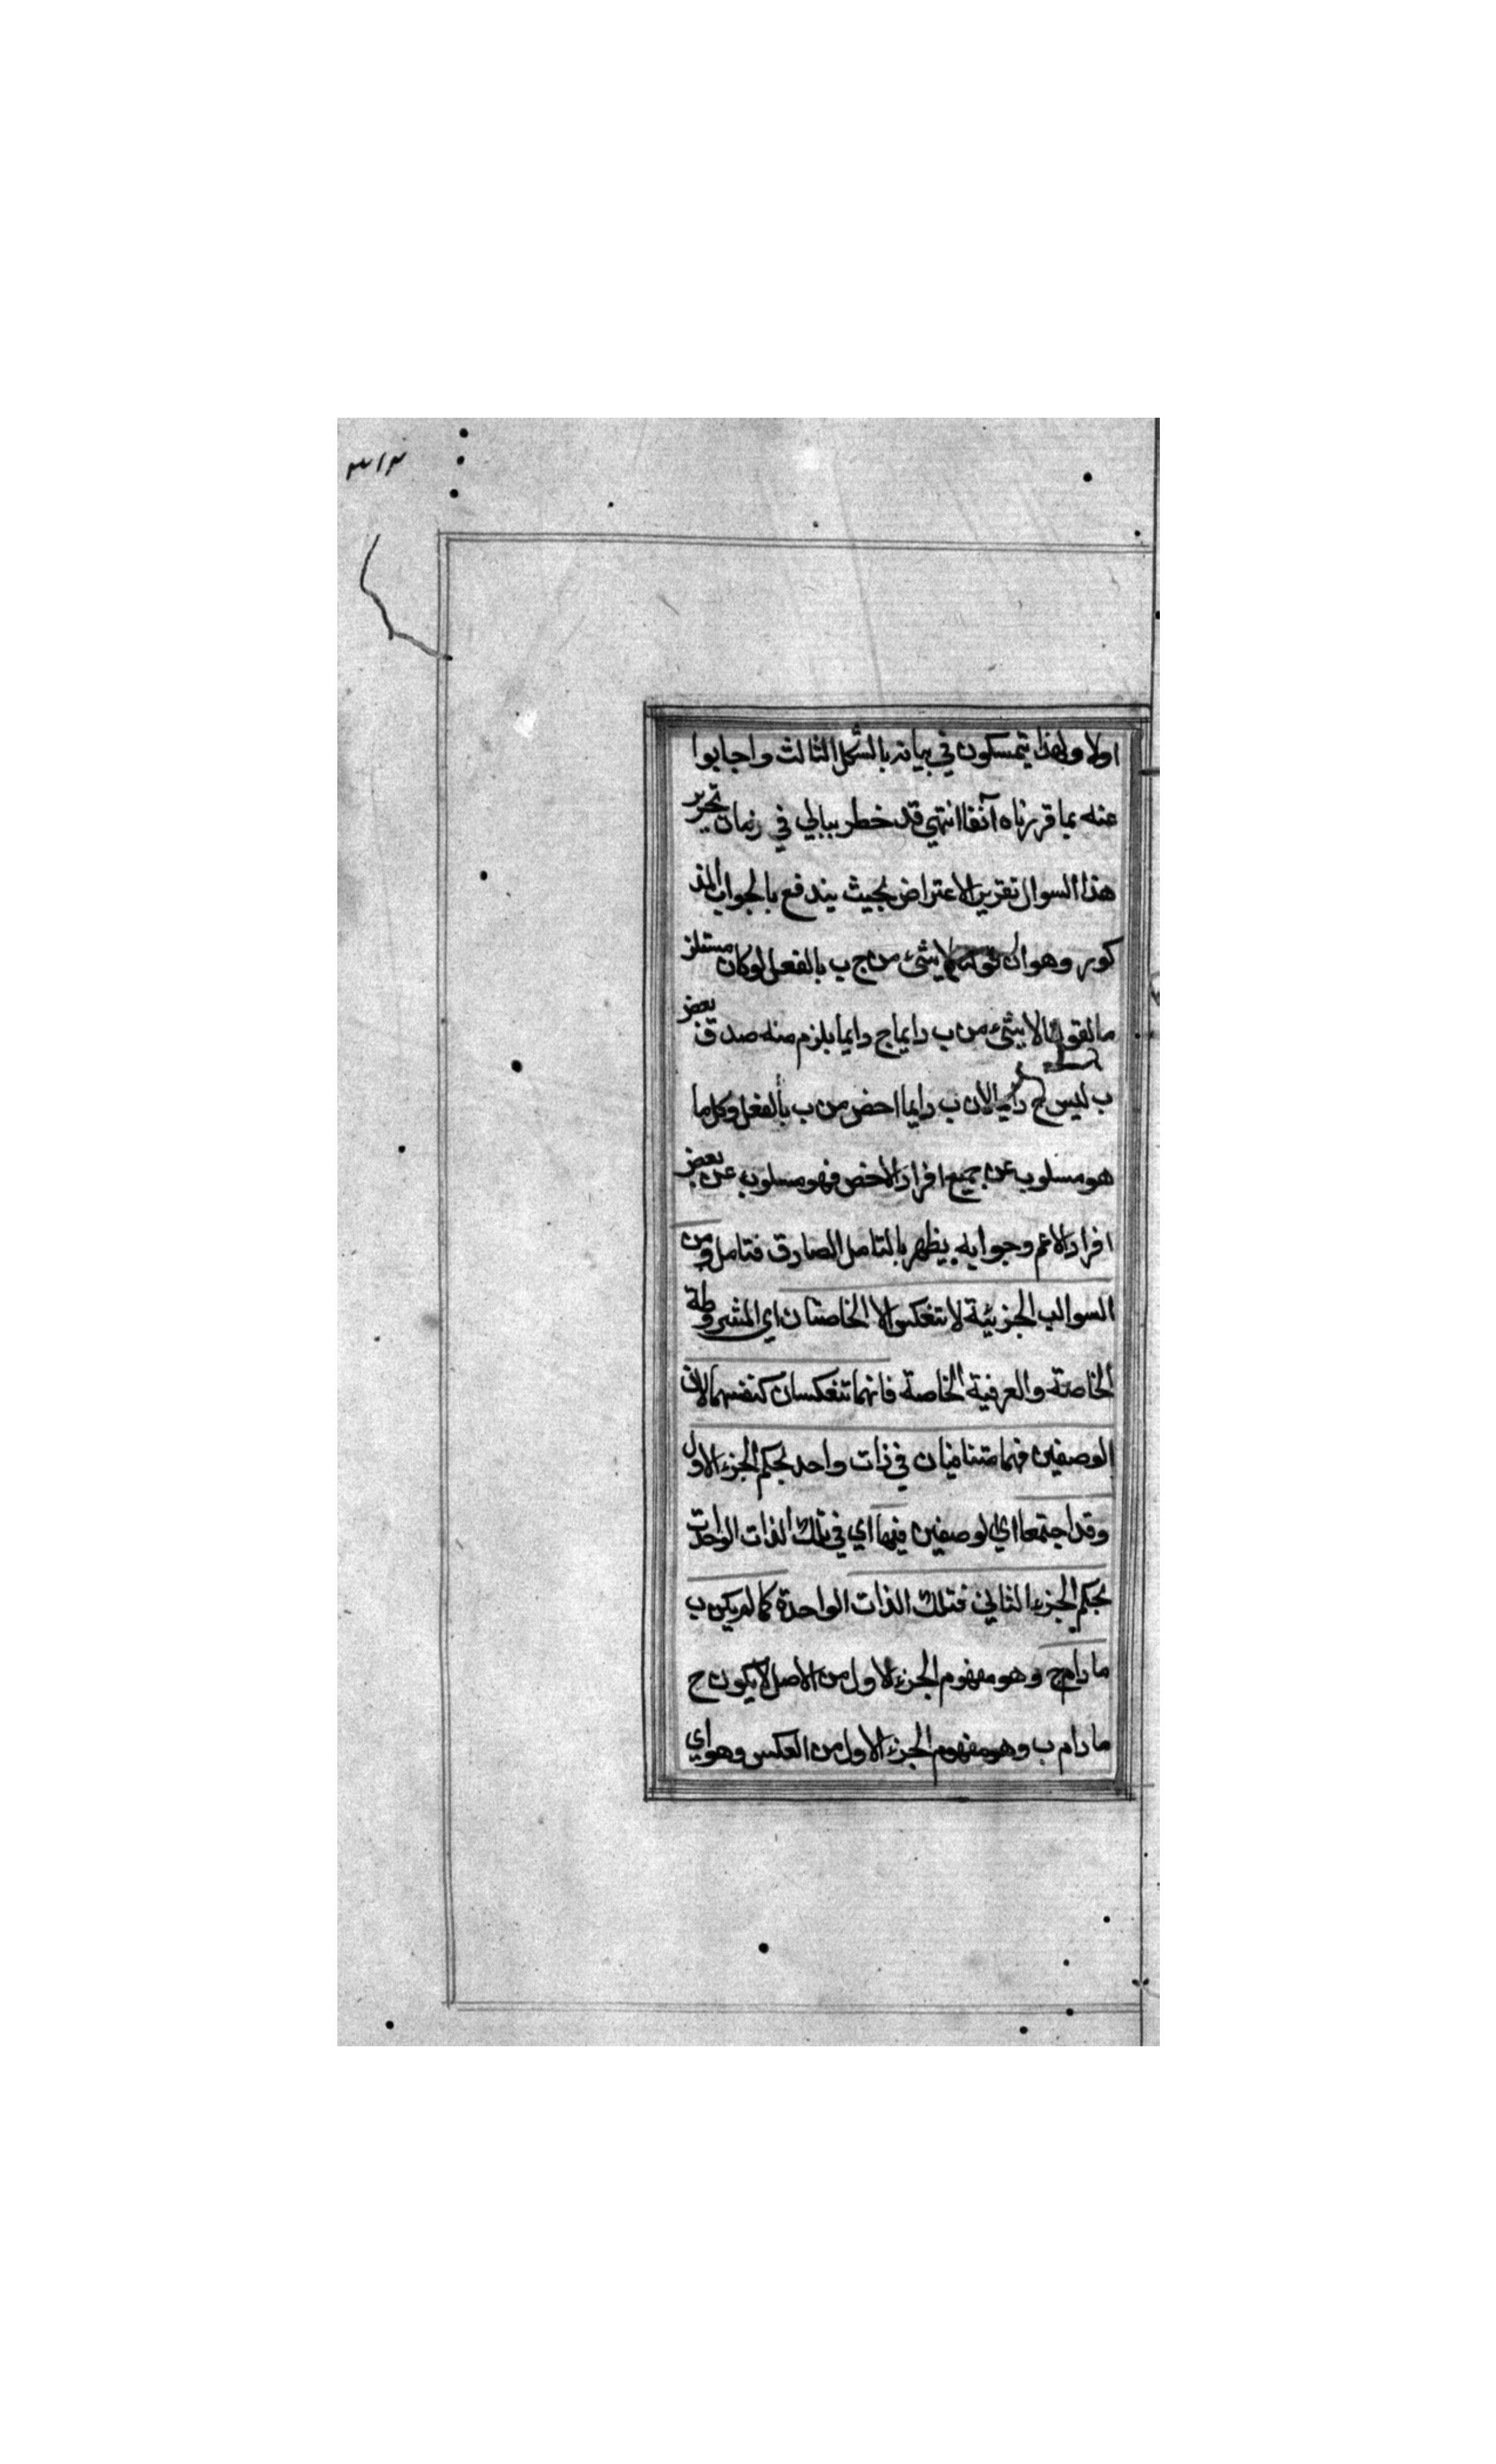 ٣١٣
اولا ولهذا يتمسكون في بيانه بالشكل الثالث واجابوا
عنه بما قررناه آنفا انتهي قد خطر ببالي في زمان تحرير
هذا السوال تقرير الاعتراض بحيث يندفع بالجواب المذ
كور وهو ان قولنا لا شئ من ج ب بالفعل لو كان مستلز
ما لقولنا لا شئ من ب دايما ج دايما يلزم منه صدق بعض
ب ليس ج دايما لان ب دايما اخص من ب بالفعل وكل ما
هو مسلوب عن جميع افراد الاخص فهو مسلوب عن بعض
افراد الاعم وجوابه يظهر بالتامل الصادق فتامل ومن
السوالب الجزئية لا تنعكس الا الخاصتان اي المشروطة
الخاصة والعرفية الخاصة فانهما تنعكسان كنفسهما لان
الوصفين فهما متنافيان في ذات واحد بحكم الجزء الاول
وقد اجتمعا اي الوصفين فيها اي في تلك الذات الواحدة
بحكم الجزء الثاني فتلك الذات الواحدة كما لم يكن ب
ما دام ج وهو مفهوم الجزء الاول من الاصل لا يكون ج
ما دام ب وهو مفهوم الجزء الاول من العكس وهو اي